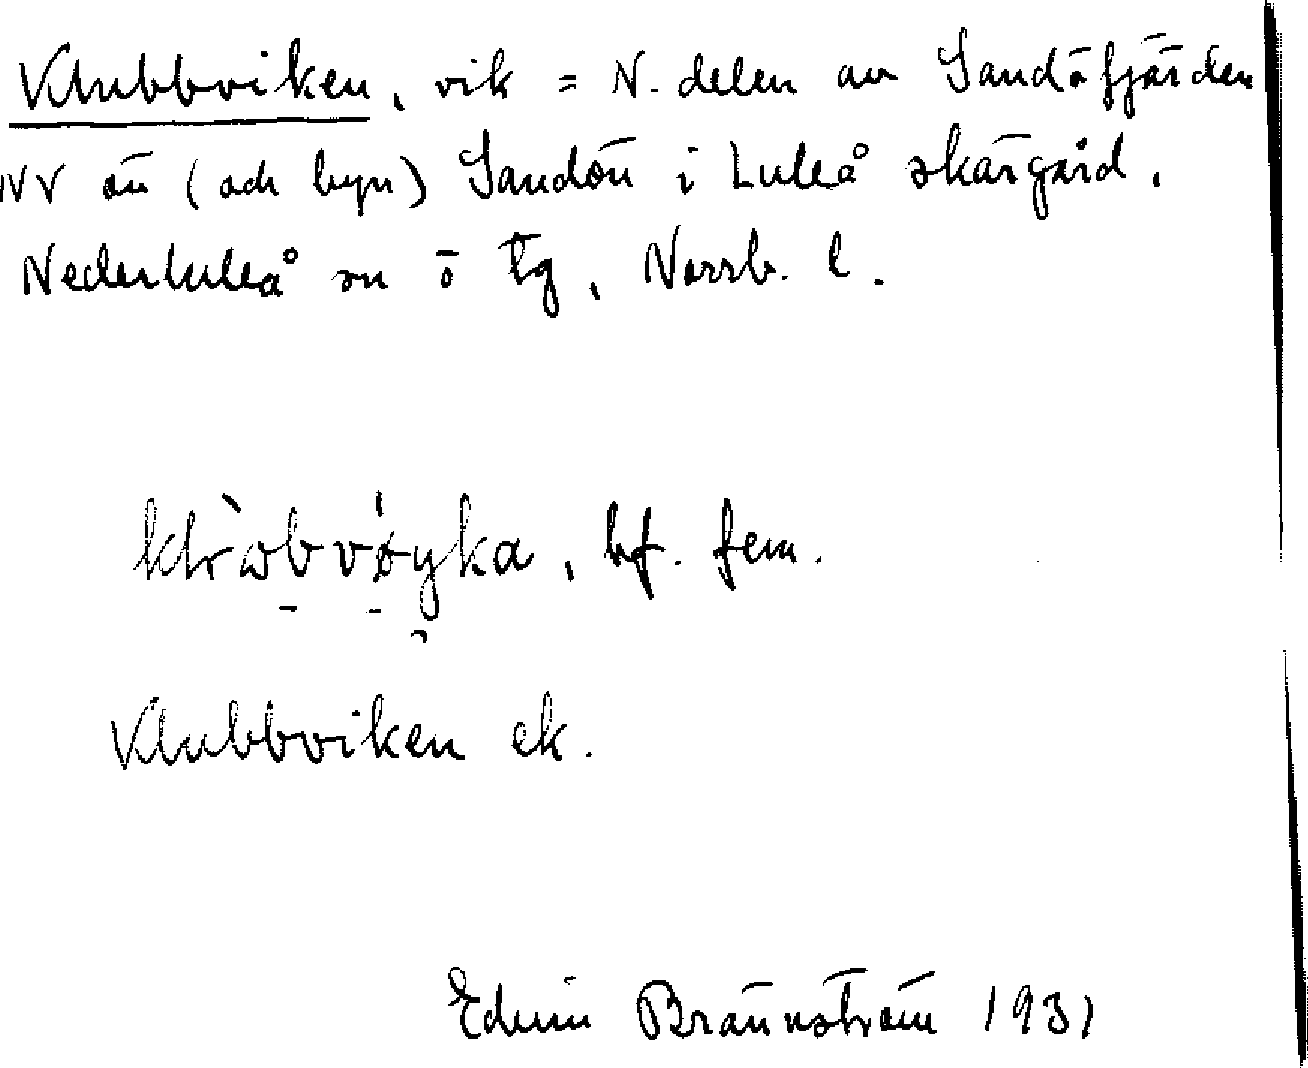 Klubbviken, vik = N. delen av Sandöfjärden
NV ön (och byn) Sandön i Luleå skärgård,
Nederluleå sn ö tg, Norrb. l.
bf. fem.
Klubbviken ek.
Edvin Brännström 1931